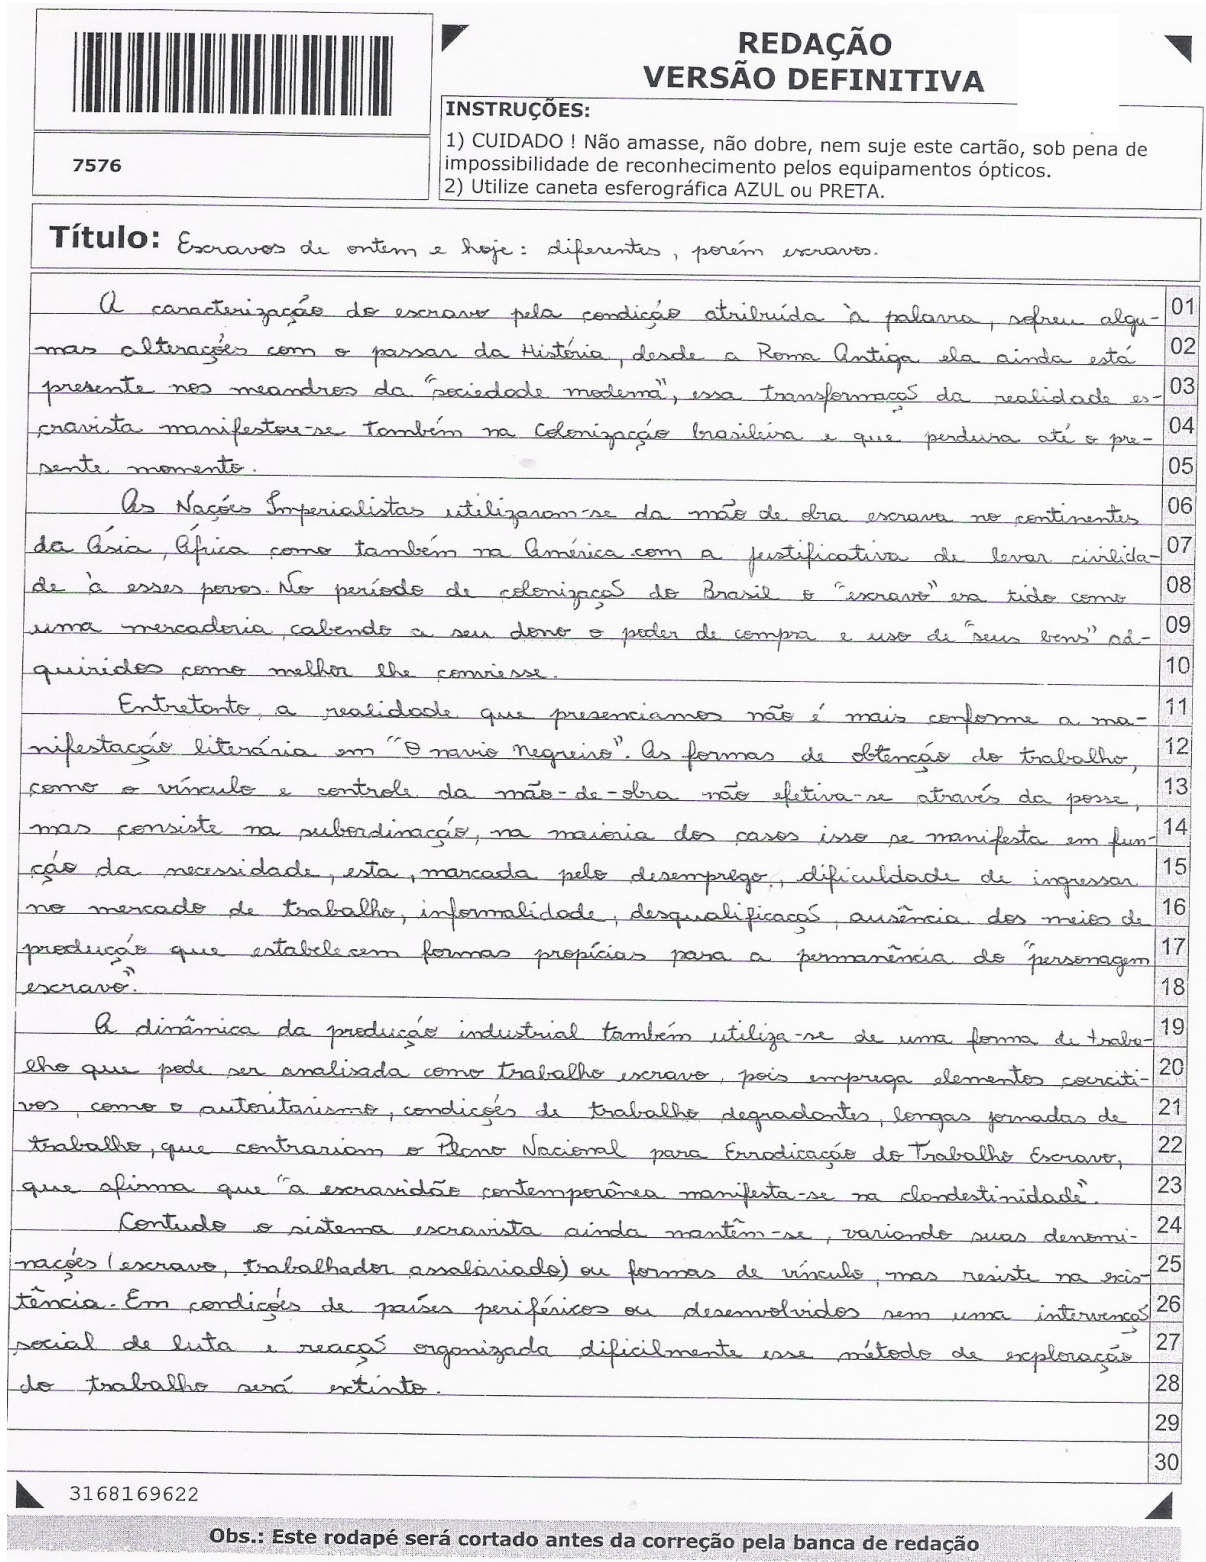 REDAÇÃO
VERSÃO DEFINITIVA
INSTRUÇÕES:
1) CUIDADO ! Não amasse, não dobre, nem suje este cartão, sob pena de
impossibilidade de reconhecimento pelos equipamentos ópticos.
2) Utilize caneta esferográfica AZUL ou PRETA.
7576
Título: Escravos de ontem e hoje: diferentes, porém escravos.
A caracterização do escravo pela condição atribuída à palavra, sofreu algu- 01
mas alterações com o passar da História, desde a Roma Antiga ela ainda está 02
presente nos meandros da "sociedade moderna", essa transformação da realidade es- 03
cravista manifestou-se também na Colonização brasileira e que perdura até o pre- 04
sente momento. 05
As Nações Imperialistas utilizaram-se da mão de obra escrava no continentes 06
da Ásia, África como também na América com a justificativa de levar civilida- 07
de à esses povos. No período de colonização do Brasil o "escravo" era tido como 08
uma mercadoria, cabendo a seu dono o poder de compra e uso de "seus bens" ad- 09
quiridos como melhor lhe conviesse. 10
Entretanto, a realidade que presenciamos não é mais conforme a ma- 11
nifestação literária em "O navio negreiro". As formas de obtenção do trabalho, 12
como o vínculo e controle da mão-de-obra não efetiva-se através da posse, 13
mas consiste na subordinação, na maioria dos casos isso se manifesta em fun- 14
ção da necessidade, esta, marcada pelo desemprego, dificuldade de ingressar 15
no mercado de trabalho, informalidade, desqualificação, ausência dos meios de 16
produção que estabelecem formas propícias para a permanência do "personagem 17
escravo". 18
A dinâmica da produção industrial também utiliza-se de uma forma de traba- 19
lho que pode ser analisada como trabalho escravo, pois emprega elementos coerciti- 20
vos, como o autoritarismo, condições de trabalho degradantes, longas jornadas de 21
trabalho, que contrariam o Plano Nacional para Erradicação do Trabalho Escravo, 22
que afirma que "a escravidão contemporânea manifesta-se na clandestinidade". 23
Contudo o sistema escravista ainda mantêm-se, variando suas denomi- 24
nações (escravo, trabalhador assalariado) ou formas de vínculo, mas resiste na exis- 25
tência. Em condições de países periféricos ou desenvolvidos sem uma intervenção 26
social de luta e reação organizada dificilmente esse método de exploração 27
do trabalho será extinto. 28
29
30
3168169622
Obs.: Este rodapé será cortado antes da correção pela banca de redação